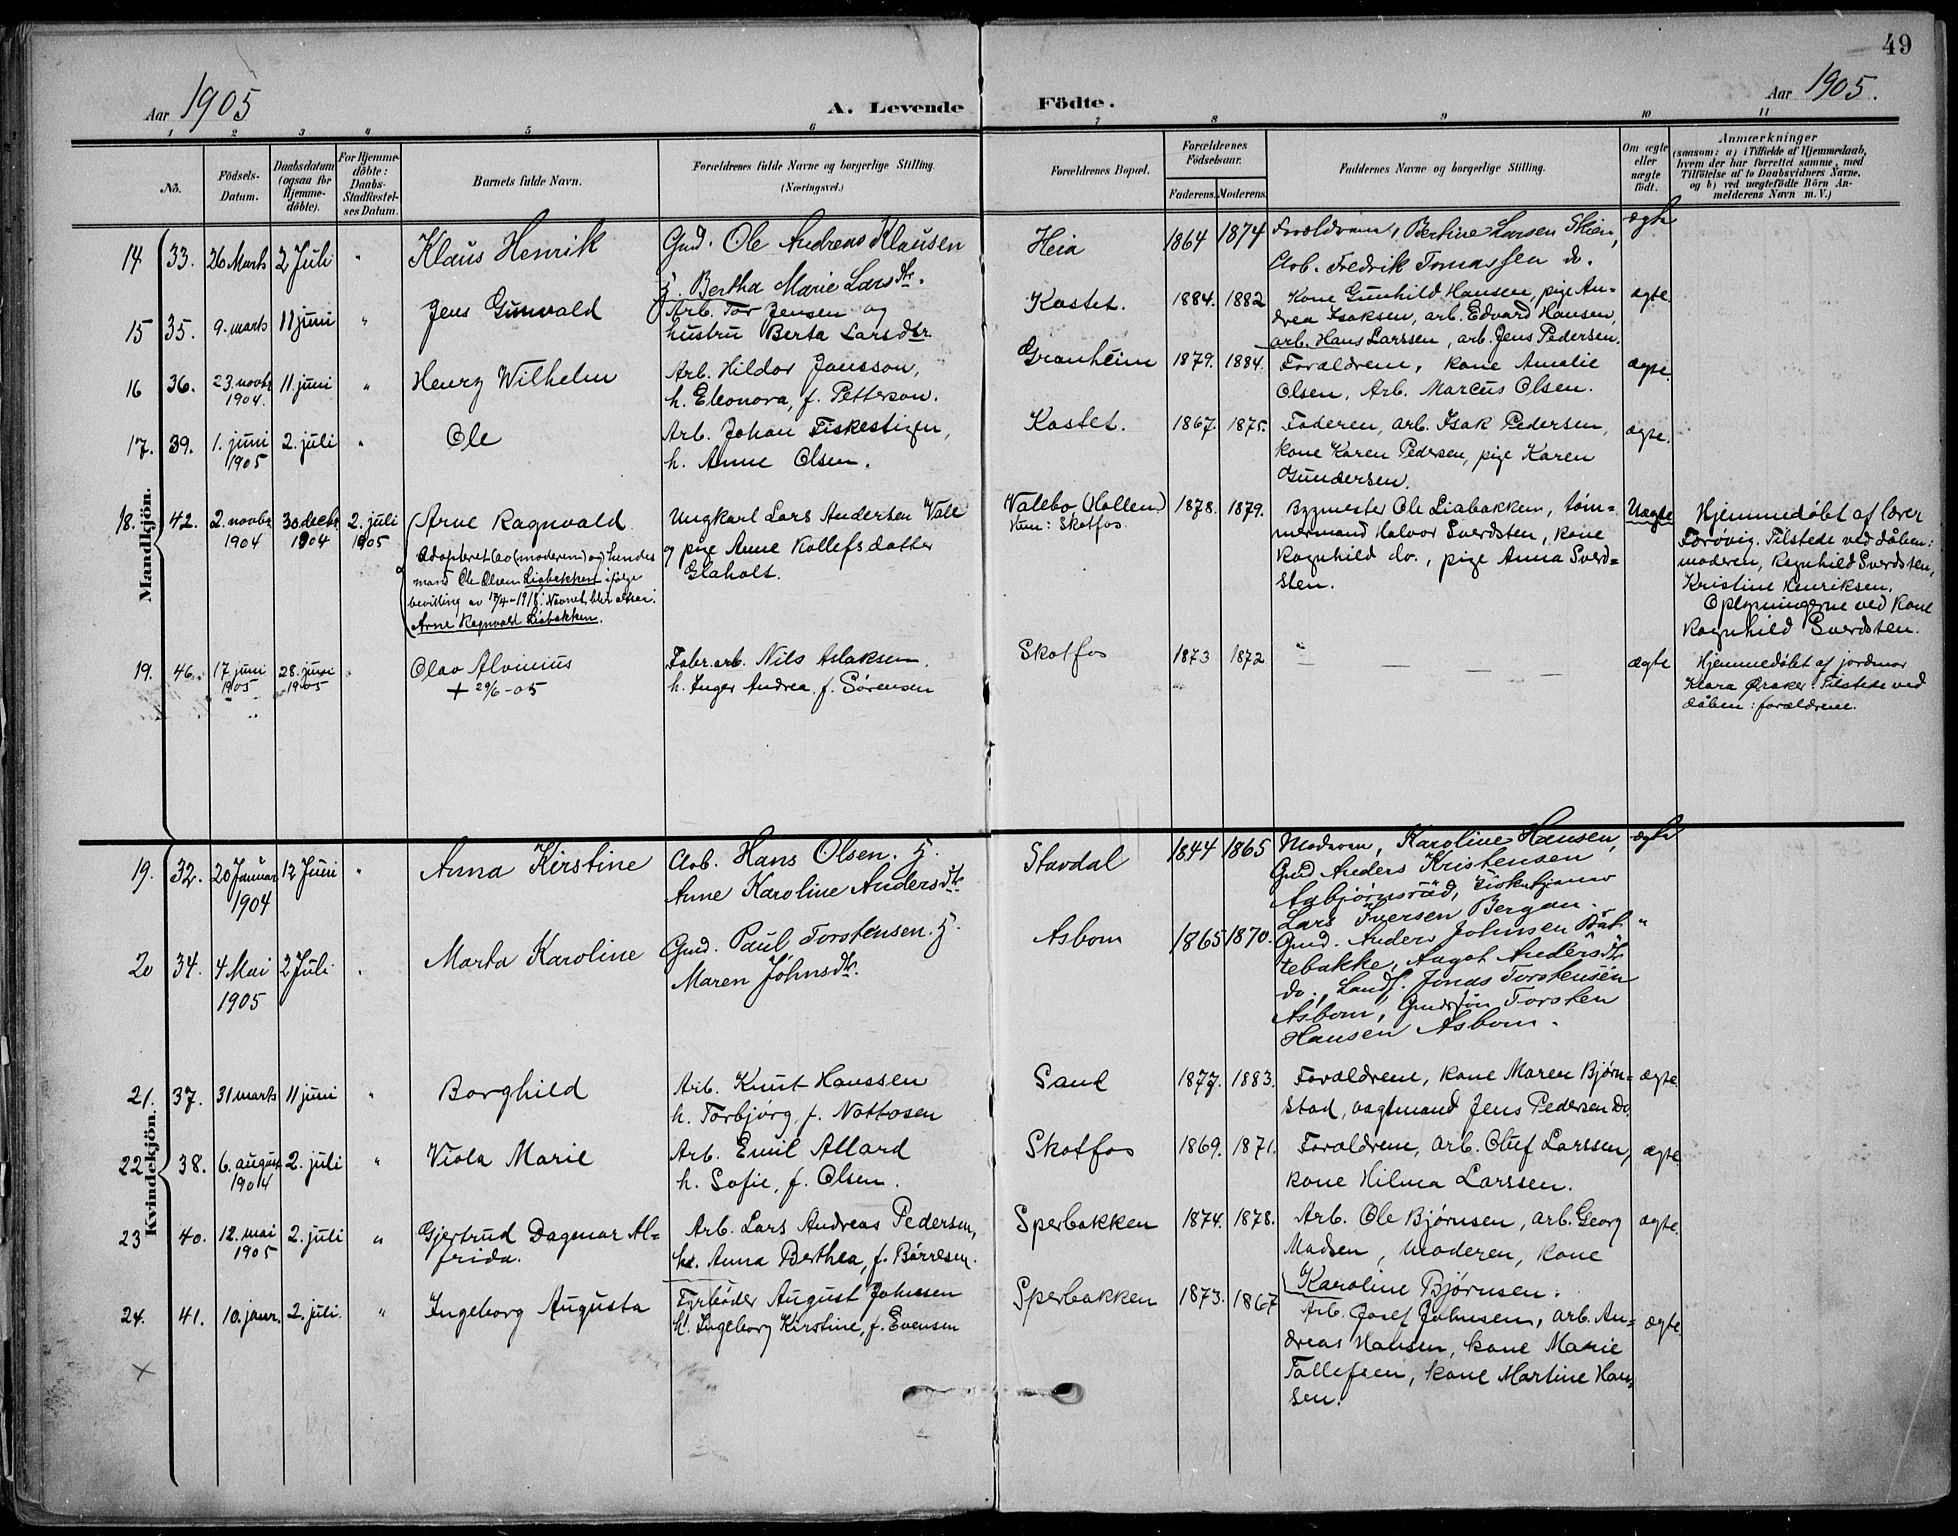 49
Aar 1905
A. Levende
Födte.
Aar 1905.
1 2 3 4 5 6 7 8 9 10 11
No.
Födsels-
Datum.
Daabsdatum
(ogsaa for
Hjemme-
döbte).
For Hjemme-
döbte:
Daabs-
Stadfæstel-
ses Datum.
Barnets fulde Navn.
Forældrenes fulde Navne og borgerlige Stilling.
(Næringsvei.)
Forældrenes Bopæl.
Forældrenes
Födselsaar.
Faderens. Moderens.
Faddernes Navne og borgerlige Stilling.
Om ægte
eller
uægte
født.
Anmærkninger
(saasom: a) i Tilfælde af Hjemmedaab,
hvem der har forrettet samme, med
Tilföielse af to Daabsvidners Navne,
og b) ved uægtefödte Börn An-
melderens Navn m. V.)
Mandkjön.
14 33. 26 Marts 2 Juli " Klaus Henrik
Gmd. Ole Andreas Klausen
H. Bertha Marie Larsdtr.
Heia 1864 1874
Forældrene, Bertine Larsen Skien,
Arb. Fredrik Tomassen do.
ægte
15 35. 9. marts 11 juni " Jens Gunvald
Arb. Tor Jensen og
hustru Berta Larsdtr.
Kastet. 1884. 1882
Kone Gunhild Hansen, pige An-
drea Isaksen, arb. Edvard Hansen,
arb. Hans Larssen, arb. Jens Pedersen.
ægte.
16 36. 23. novbr 1904. 11. juni " Henry Wilhelm
Arb. Hildor Jonsson,
h. Eleonora, f. Petterson.
Granheim 1879. 1884.
Forældrene, kone Amalie
Olsen, Arb. Marcus Olsen.
ægte.
17. 39. 1. juni 1905 2. juli " Ole
Arb. Johan Fiskestigen,
h. Anne Olsen.
Kastet. 1867. 1875.
Faderen, arb. Isak Pedersen,
kone Karen Pedersen, pige Karen
Gundersen.
ægte.
18. 42. 2. novbr 1904 30 decbr 1904 2. juli 1905 Arne Ragnvald
Adopteret av (moderen) og hendes
mand Ole Olsen Liabakken ifølge
bevilling av 17/4-1918. Navnet blir altsaa:
Arne Ragnvald Liabakken.
Ungkarl Lars Andersen Vale
og pige Anne Kollefsdatter
Glaholt.
Valebø (Hollen)
Kun: Skotfos.
1878. 1879.
Bygmester Ole Liabakken, tøm-
mermand Halvor Sverdsten, kone
Ragnhild do., pige Anna Sverd-
sten.
Uægte
Hjemmedøbt af lærer
Forøvig. Tilstede ved dåben:
moderen, Ragnhild Sverdsten,
Kristine Henriksen.
Oplysningerne ved kone
Ragnhild Sverdsten.
19. 46. 17 juni 1905 28. juni 1905 " Olav Alvinius
+ 29/6-05
Fabr.arb. Nils Aslaksen.
h. Inger Andrea, f. Sörensen
Skotfos 1873 1872
" — — —
ægte
Hjemmedøbt af jordmor
Klara Øraker. Tilstede ved
dåben: forældrene.
Kvindekjön.
19. 32. 20 Januar 1904 12 Juni " Anna Kirstine
Arb. Hans Olsen. H.
Anne Karoline Andersdtr
Stavdal 1844 1865
Moderen, Karoline Hansen,
Gmd Anders Kristensen
Asbjørnsrød,
Lars Iversen Bergan.
ægte
20 34. 4 Mai 1905 2 Juli " Marta Karoline
Gmd. Paul Torstensen. H.
Maren Johnsdtr.
Åsbom 1865 1870.
Gmd. Anders Johnsen Båt-
tebakke, Aagot Andersdtr
do., Landh. Jonas Torstensen
Åsbom, Gmdsøn Torsten
Hansen Åsbom.
"
21. 37. 31 marts 11 juni " Borghild
Arb. Knut Hanssen
h. Torbjørg, f. Nottosen
Sand 1877. 1883.
Forældrene, kone Maren Bjørn-
stad, vagtmand Jens Pedersen Do.
ægte
22 38. 6. august 1904 2. juli " Viola Marie
Arb. Emil Allard
h. Sofie, f. Olsen.
Skotfos 1869. 1871.
Forældrene, arb. Oluf Larssen,
kone Hilma Larssen.
ægte.
23 40. 12. mai 1905 2. juli " Gjertrud Dagmar Al-
frida.
Arb. Lars Andreas Pedersen,
h. Anna Berthea, f. Børresen.
Sperbakken 1874. 1878.
Arb. Ole Bjørnsen, arb. Georg
Madsen, moderen, kone
Karoline Bjørnsen.
ægte.
24. 41. 10. janr. 2. juli. " Ingeborg Augusta
Fyrbøder August Johnsen
h. Ingeborg Kirstine, f. Evensen
Sperbakken 1873. 1867
Arb. Josef Johnsen, arb. An-
dreas Hansen, kone Marie
Tollefsen, kone Martine Han-
sen.
ægte.
×